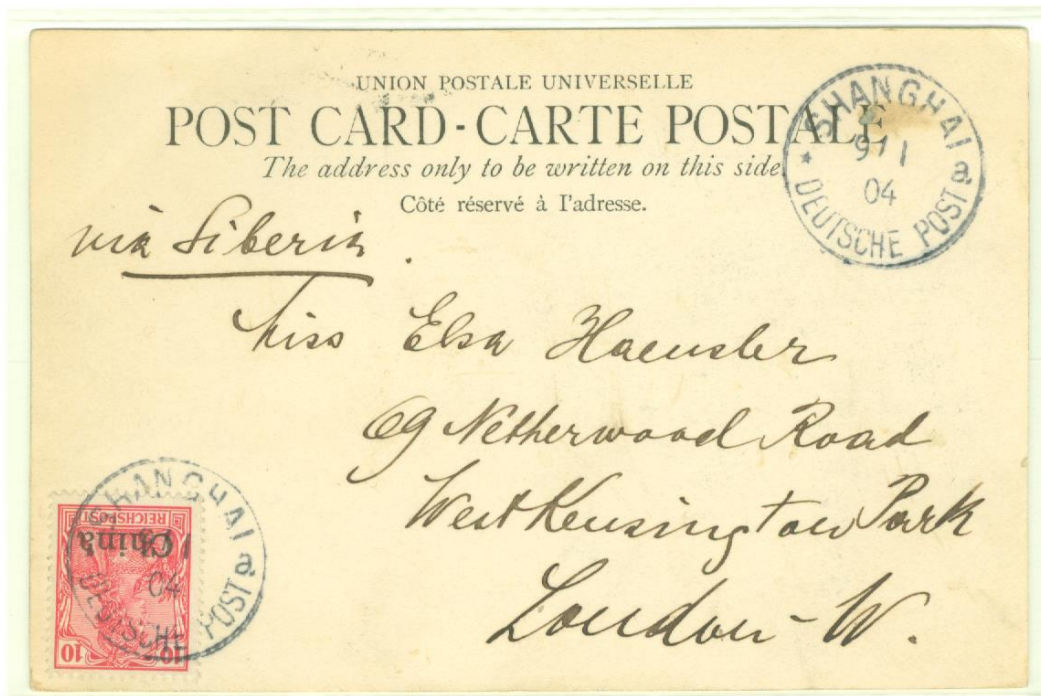 UNION POSTALE UNIVERSELLE
POST CARD - CARTE POSTALE
The address only to be written on this side.
Côté réservé à l'adresse.
SHANGHAI a
9/1
04
* DEUTSCHE POST
via Siberia.
Miss Elsa Haeusler
69 Netherwood Road
West Kensington Park
London - W.
SHANGHAI a
04
DEUTSCHE POST
REICHSPOST
China
10 10